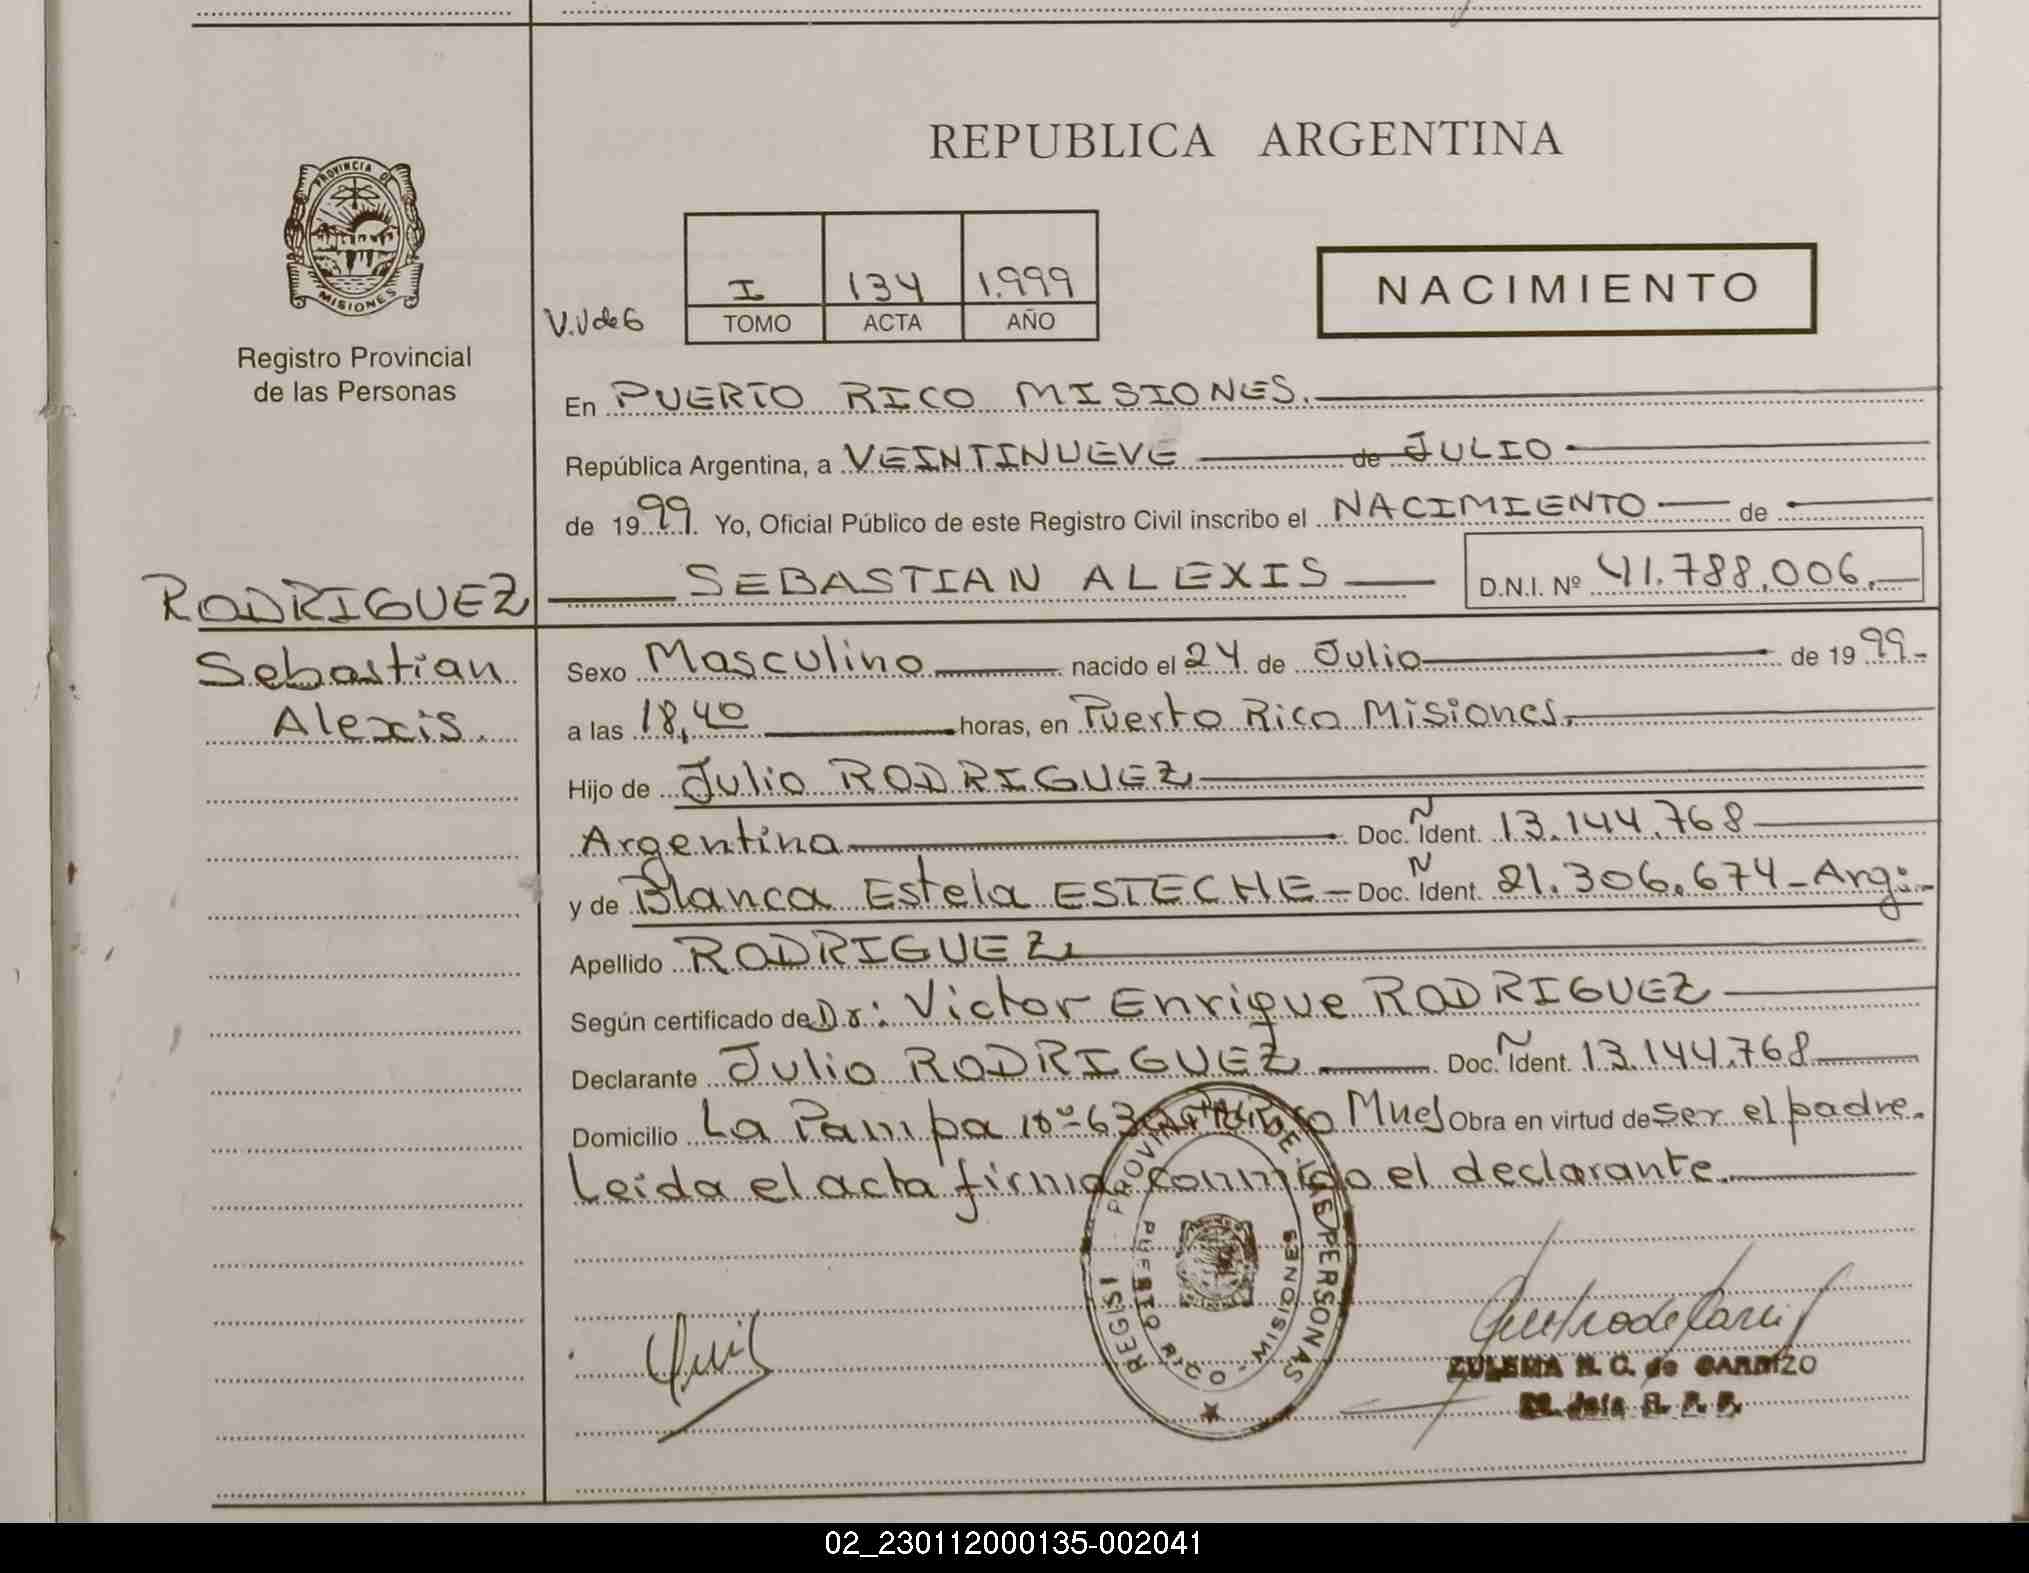 REPUBLICA ARGENTINA
PROVINCIA DE
MISIONES
Registro Provincial
de las Personas
V.V de G
I 134 1.999
TOMO ACTA AÑO
NACIMIENTO
En PUERTO RICO MISIONES.
República Argentina, a VEINTINUEVE de JULIO
de 1999. Yo, Oficial Público de este Registro Civil inscribo el NACIMIENTO de
RODRIGUEZ SEBASTIAN ALEXIS D.N.I. Nº 41.788.006.
Sebastian
Alexis.
Sexo Masculino nacido el 24 de Julio de 1999.-
a las 18,40 horas, en Puerto Rico Misiones.
Hijo de Julio RODRIGUEZ
Argentina Doc. Ident. 13.144.768
y de Blanca Estela ESTECHE - Doc. Ident. 21.306.674 - Arg:-
Apellido RODRIGUEZ
Según certificado de Dr: Victor Enrique RODRIGUEZ
Declarante Julio RODRIGUEZ Doc. Ident. 13.144.768
Domicilio La Pampa nº 63 Obra en virtud de ser el padre.
Leida el acta firma conmigo el declarante.
PROVINCIAL DE LAS PERSONAS
PUERTO RICO - MISIONES
ZULEMA N. C. de CARRIZO
02_230112000135-002041